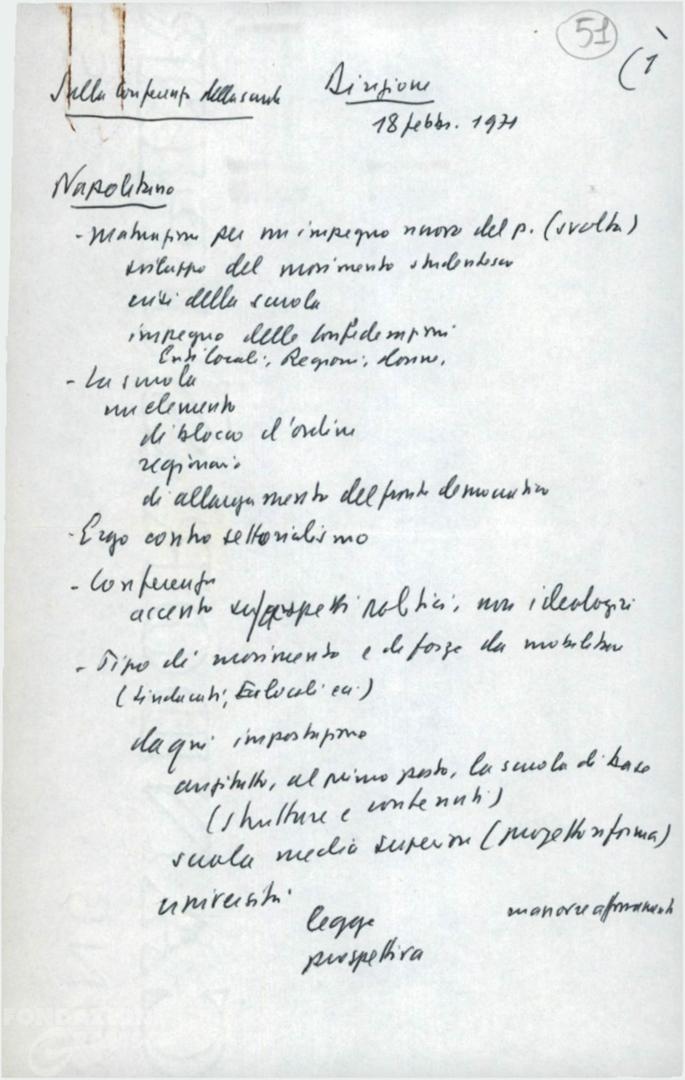 51
(1
Sulla conferenza della scuola Direzione
18 febbr. 1971
Napolitano
- Maturazione per un impegno nuovo del p. (svolta)
sviluppo del movimento studentesco
crisi della scuola
impegno delle Confederazioni
Enti locali, Regioni, donne.
- La scuola
un elemento
di blocco d'ordine
reazionario
di allargamento del fronte democratico
- Ergo contro settorialismo
- Conferenza
accento su aspetti politici, non ideologici
- Tipo di movimento e di forze da mobilitare
(Sindacati, En locali ecc.)
da qui impostazione
anzitutto, al primo posto, la scuola di base
(strutture e contenuti)
scuola media superiore (progetto riforma)
università
legge
prospettiva
FONDAZIONE